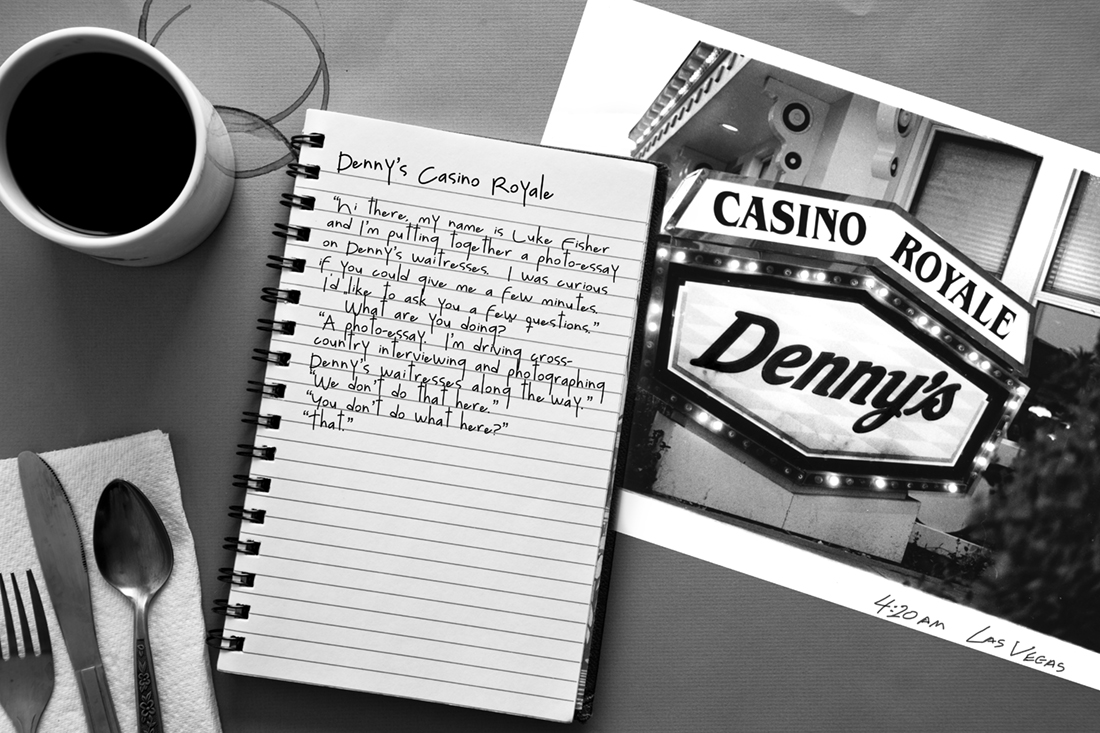 Denny's Casino Royale
"Hi there, my name is Luke Fisher
and I'm putting together a photo-essay
on Denny's waitresses. I was curious
if you could give me a few minutes.
I'd like to ask you a few questions."
What are you doing?
"A photo-essay. I'm driving cross-
country interviewing and photographing
Denny's waitresses along the way."
"We don't do that here."
"You don't do what here?"
"That."
CASINO ROYALE
Denny's
4:20 AM Las Vegas